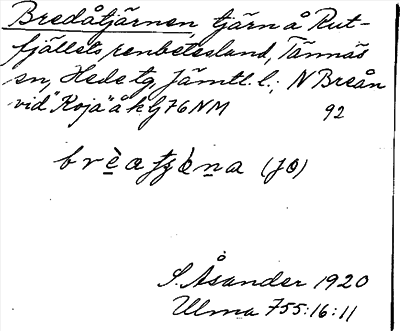 Bredåtjärnen, tjärn å Rut-
fjällets renbetesland, Tännäs
sn, Hede tg, Jämtl. l.; N Breån
vid "Koja" å k G 76 NM 92
(jo)
S. Åsander 1920
Ulma 755:16:11